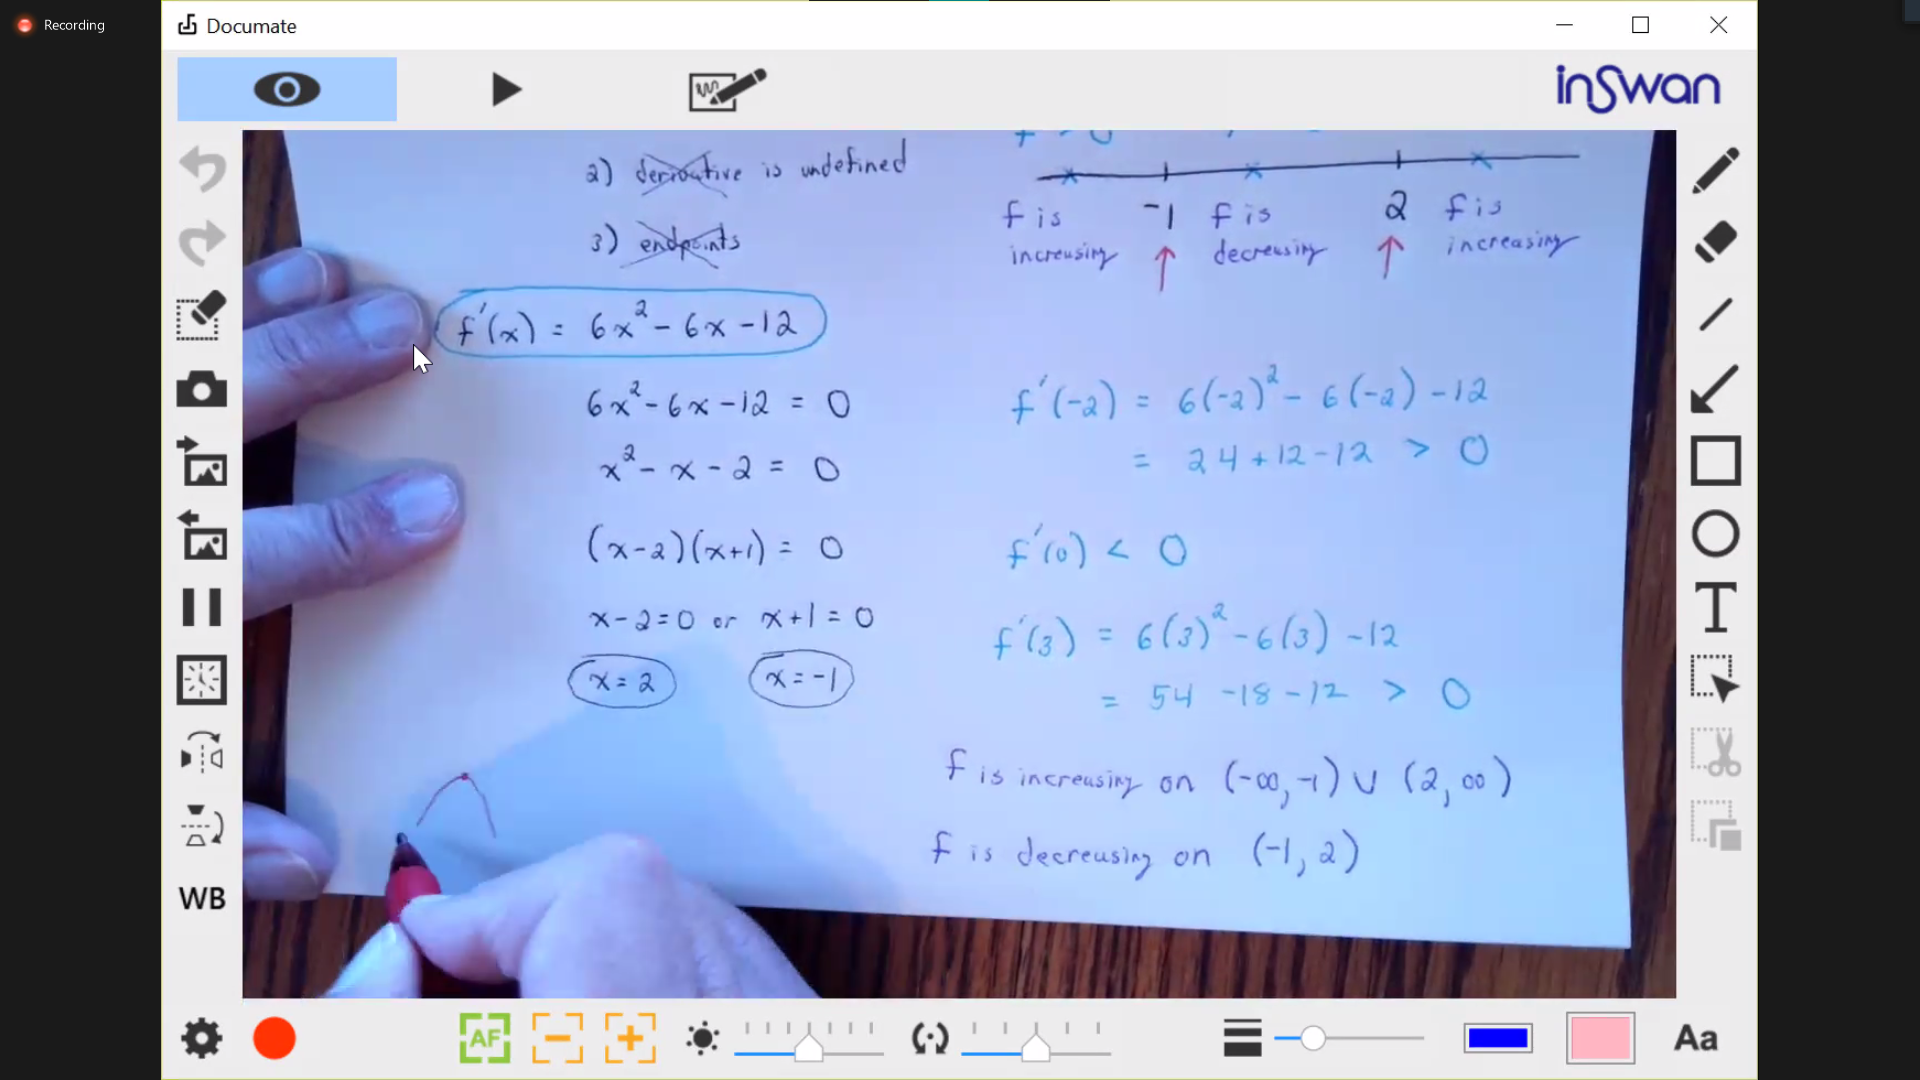 Recording
Documate
inSwan
2) derivative is undefined
3) endpoints
f'(x) = 6x² - 6x - 12
6x² - 6x - 12 = 0
x² - x - 2 = 0
(x-2)(x+1) = 0
x-2=0 or x+1=0
x=2 x=-1
-1 2
f is f is f is
increasing decreasing increasing
f'(-2) = 6(-2)² - 6(-2) - 12
= 24+12-12 > 0
f'(0) < 0
f'(3) = 6(3)² - 6(3) - 12
= 54 -18 -12 > 0
f is increasing on (-∞,-1) ∪ (2,∞)
f is decreasing on (-1,2)
T
WB
AF
Aa